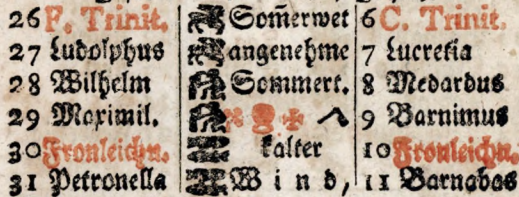 26 F. Trinit. Som̃erwet 6 C. Trinit.
27 Ludolphus angenehme 7 Lucretia
28 Wilhelm Sommert. 8 Medardus
29 Maximil. 9 Barnimus
30 Fronleichn. kalter 10 Fronleichn.
31 Petronella Wind, 11 Barnabas